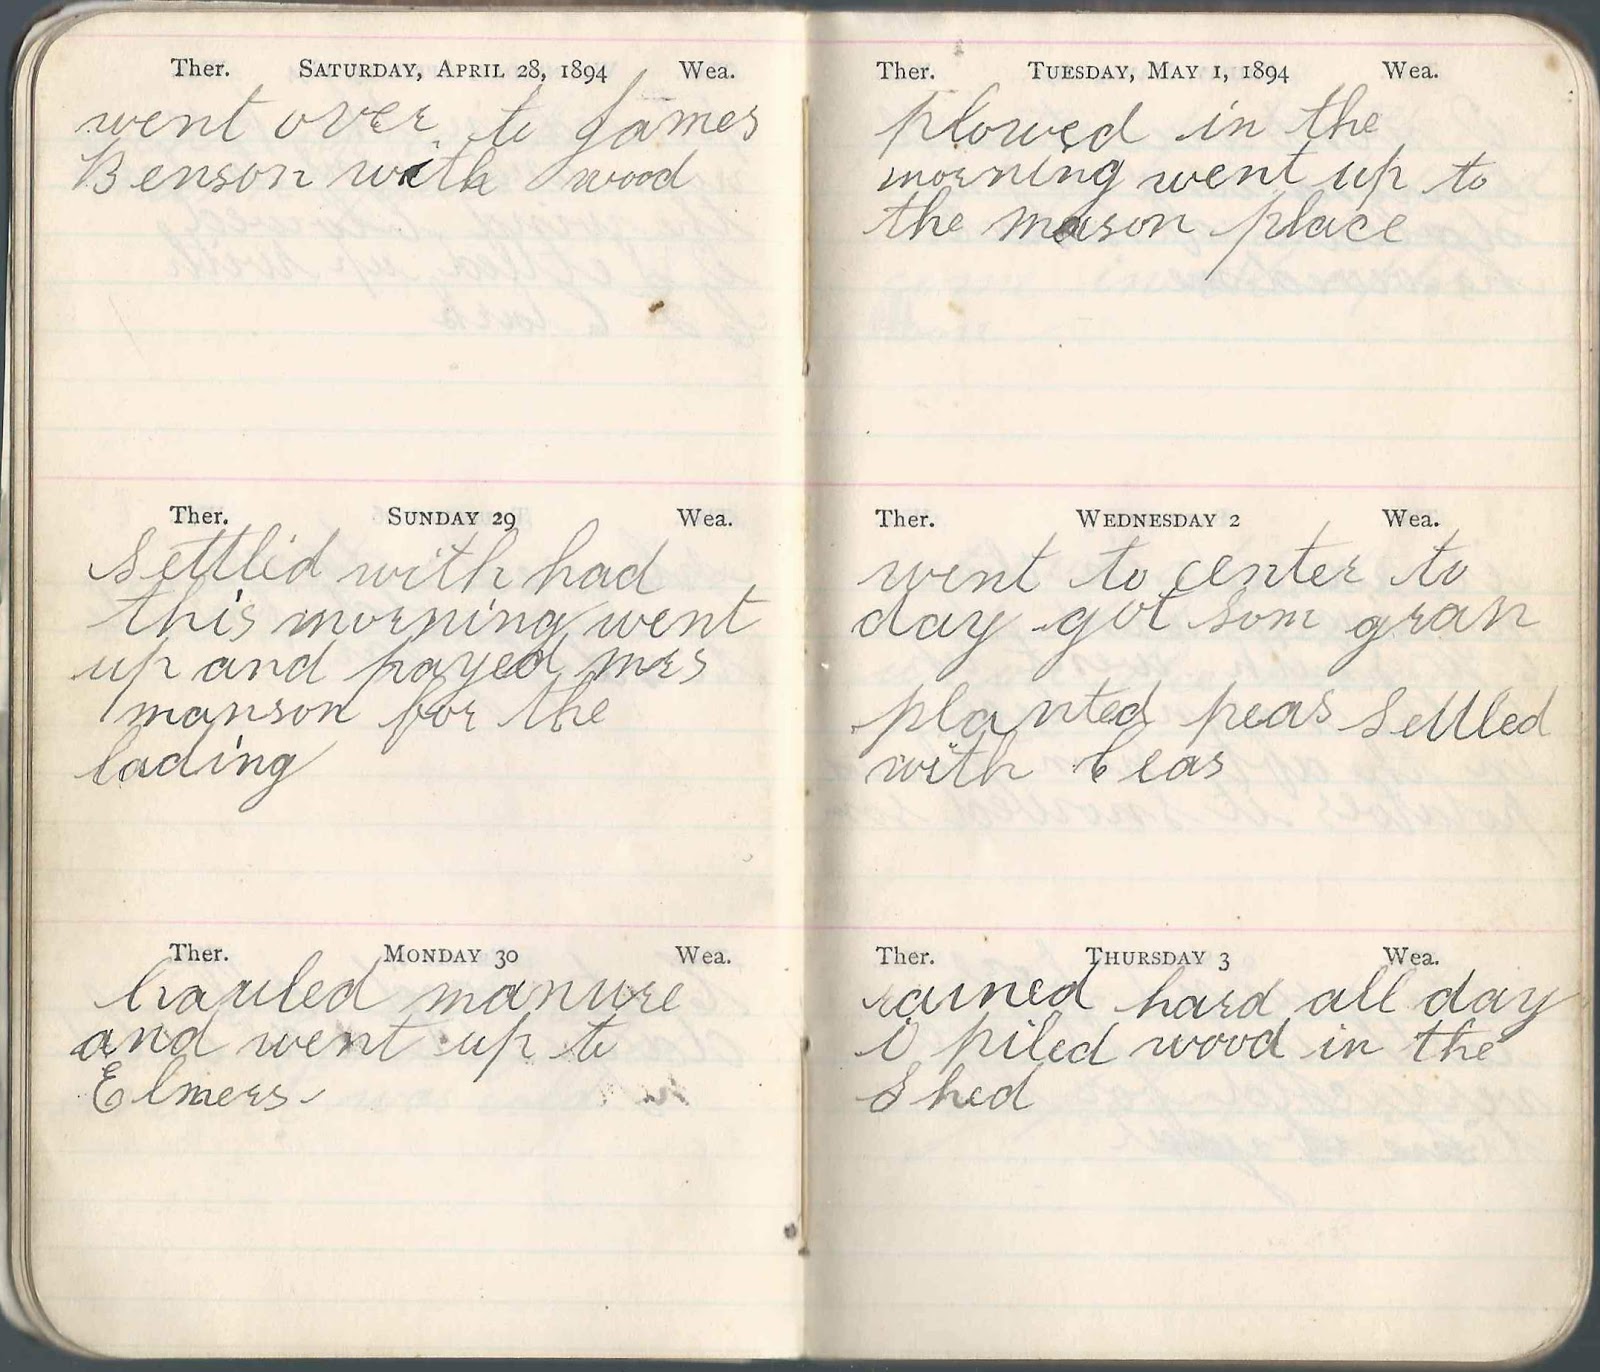 Ther. SATURDAY, APRIL 28, 1894 Wea.
went over to James
Benson with wood
Ther. SUNDAY 29 Wea.
Settlid with had
this morning went
up and payed mrs
manson for the
lading
Ther. MONDAY 30 Wea.
hauled manure
and went up to
Elmers
Ther. TUESDAY, MAY 1, 1894 Wea.
plowed in the
morning went up to
the mason place
Ther. WEDNESDAY 2 Wea.
went to center to
day got som gran
planted peas Settled
with
Ther. THURSDAY 3 Wea.
rained hard all day
i piled wood in the
Shed